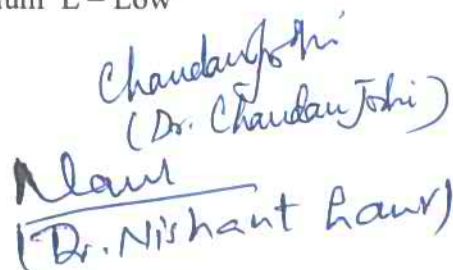 L – Low
Chandan Joshi
(Dr. Chandan Joshi)
(Dr. Nishant Laur)